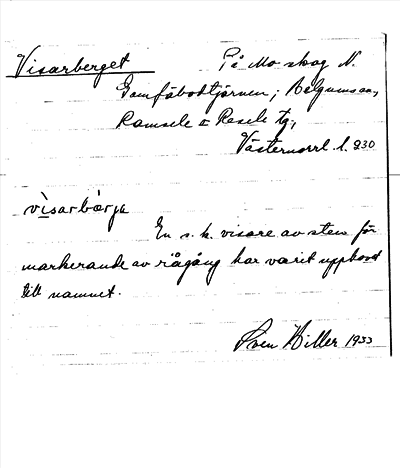 Visarberget På Mo skog N.
Gamfäbodtjärnen; Helgumsån,
Ramsele o Resele tg,
Västernorrl. l. 230
vìsarbærjə
En s. k. visare av sten för
markerande av rågång har varit upphovet
till namnet.
Sven Hiller 1933